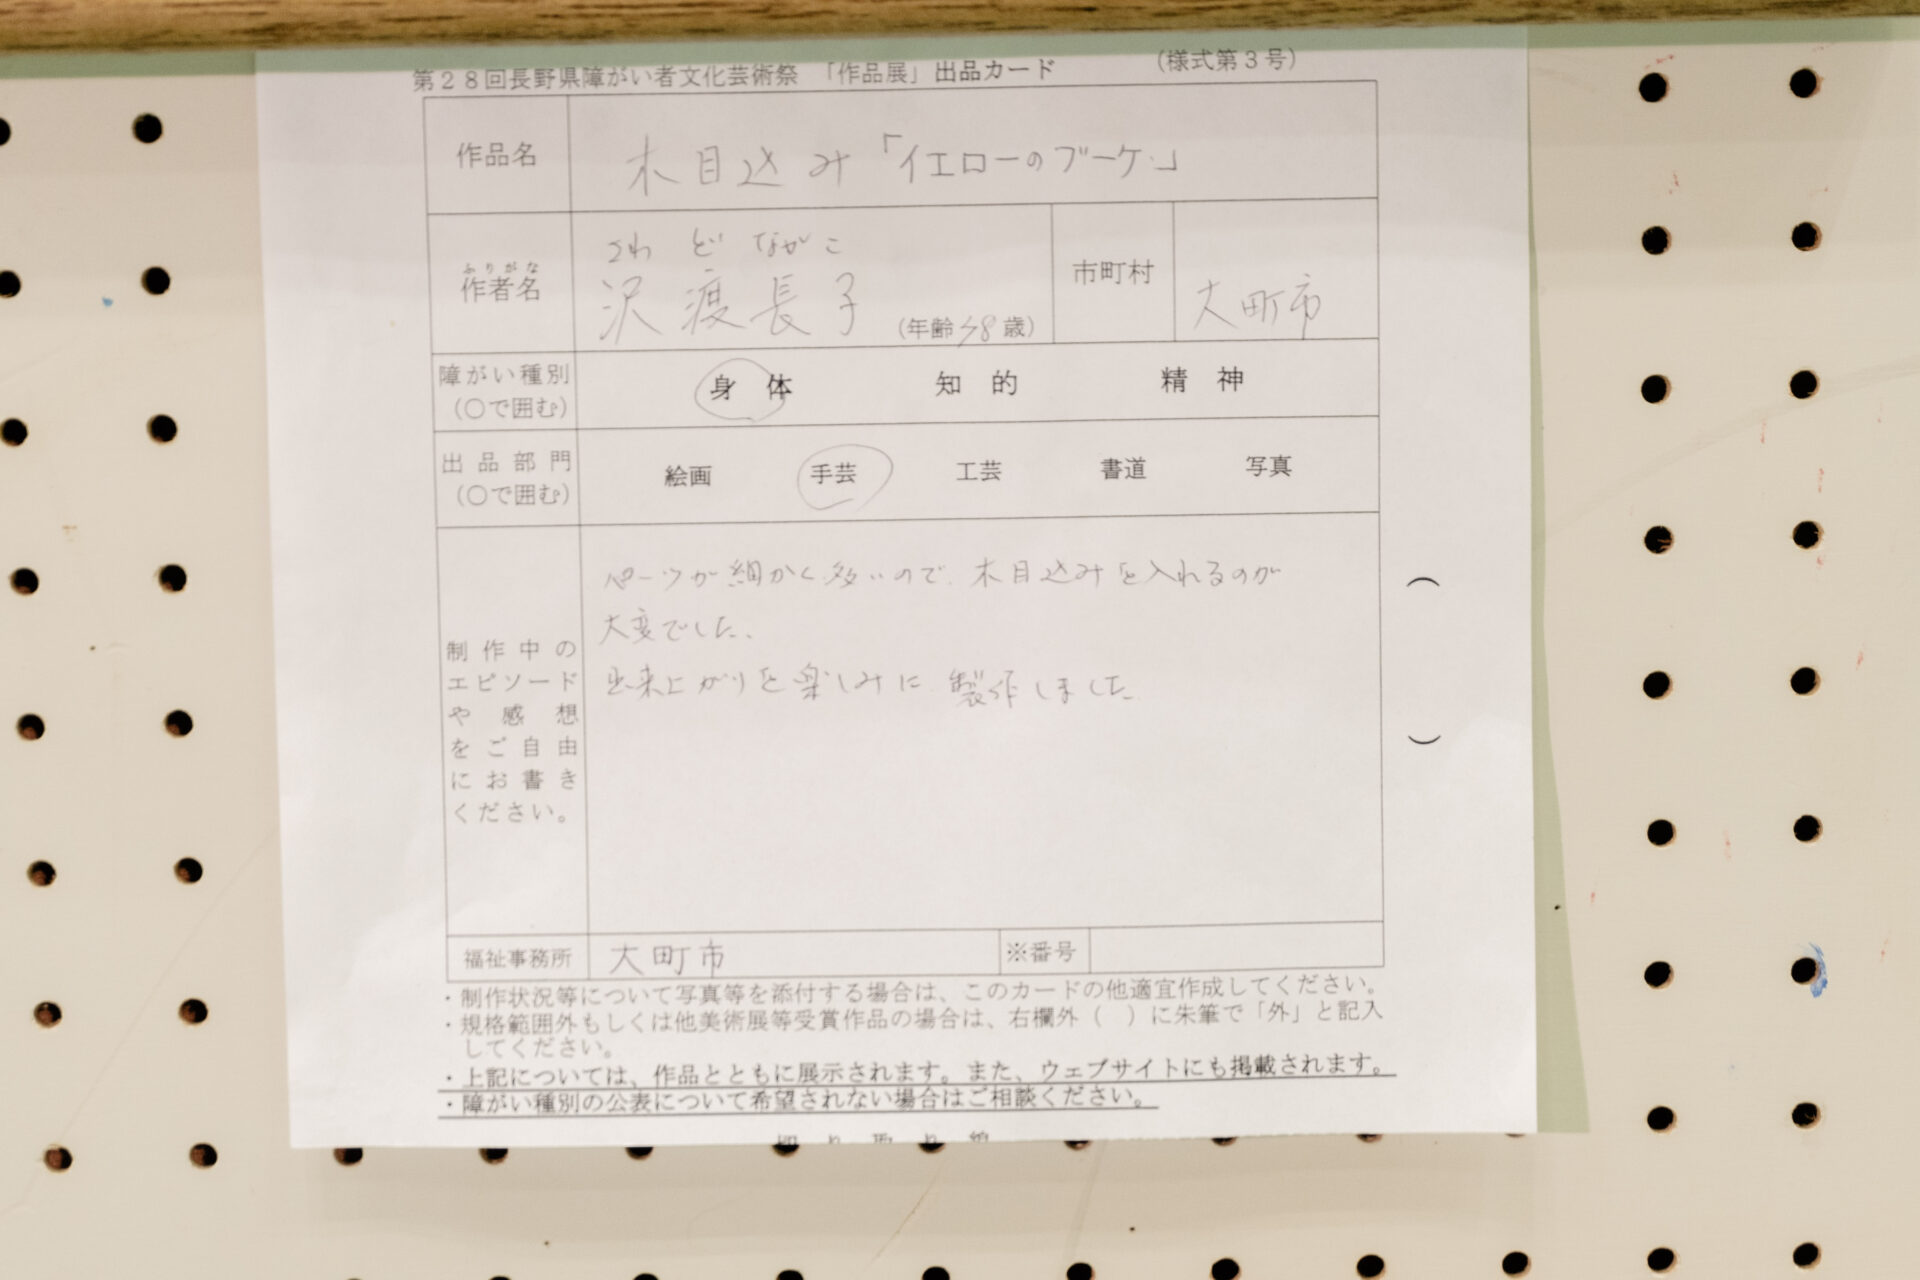 第28回長野県障がい者文化芸術祭 「作品展」出品カード (様式第3号)
作品名 木目込み「イエローのブーケ」
さわ ど ながこ
ふりがな
作者名 沢渡長子 (年齢 歳) 市町村 大町市
障がい種別 身体 知的 精神
(○で囲む)
出品部門 絵画 手芸 工芸 書道 写真
(○で囲む)
パーツが細かく多いので、木目込みを入れるのが
大変でした。
出来上がりを楽しみに製作しました
制作中の
エピソード
や感想
をご自由
にお書き
ください。
( )
福祉事務所 大町市 ※番号
・制作状況等について写真等を添付する場合は、このカードの他適宜作成してください。
・規格範囲外もしくは他美術展等受賞作品の場合は、右欄外( )に朱筆で「外」と記入
してください。
・上記については、作品とともに展示されます。また、ウェブサイトにも掲載されます。
・障がい種別の公表について希望されない場合はご相談ください。
切り取り線